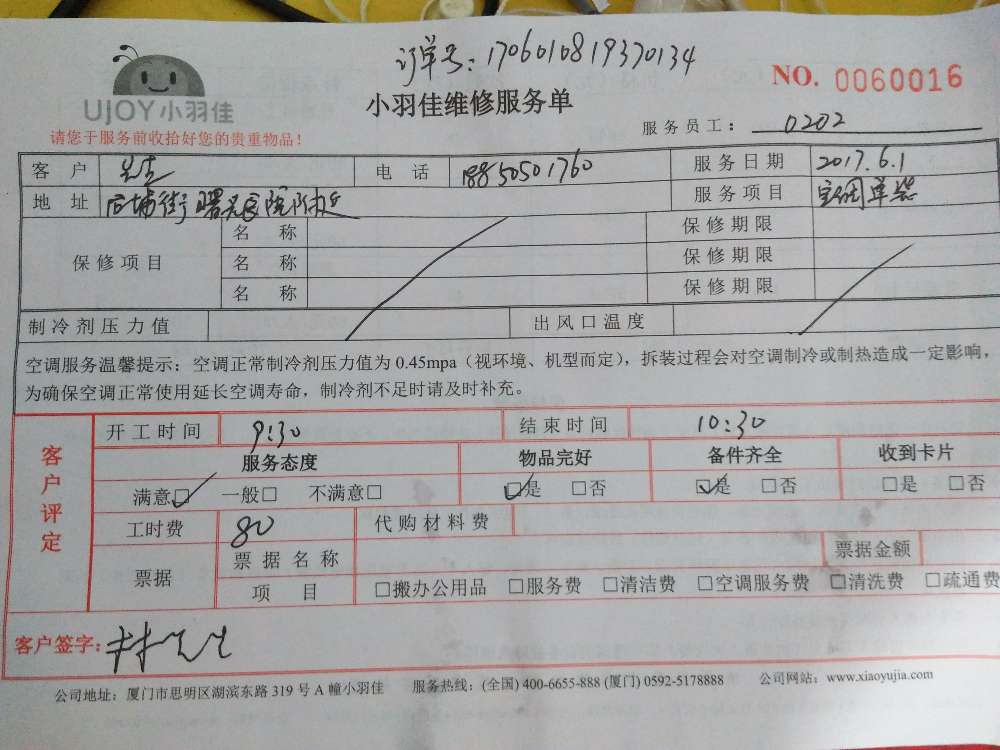 订单号：1706010819370134
UJOY小羽佳
小羽佳维修服务单
NO. 0060016
请您于服务前收拾好您的贵重物品！
服务员工： 0202
客 户 电 话 18850501760 服务日期 2017.6.1
地 址 后埔街曙光医院附近 服务项目 空调单装
保修项目
名 称 保修期限
名 称 保修期限
名 称 保修期限
制冷剂压力值 出风口温度
空调服务温馨提示：空调正常制冷剂压力值为 0.45mpa（视环境、机型而定），拆装过程会对空调制冷或制热造成一定影响，
为确保空调正常使用延长空调寿命，制冷剂不足时请及时补充。
客户评定
开工时间 9:30 结束时间 10:30
服务态度 物品完好 备件齐全 收到卡片
满意☑ 一般□ 不满意□ ☑是 □否 ☑是 □否 □是 □否
工时费 80 代购材料费
票据 票据名称 票据金额
项 目 □搬办公用品 □服务费 □清洁费 □空调服务费 □清洗费 □疏通费
客户签字：林先生
公司地址：厦门市思明区湖滨东路 319 号 A 幢小羽佳 服务热线：(全国) 400-6655-888 (厦门) 0592-5178888 公司网站：www.xiaoyujia.com